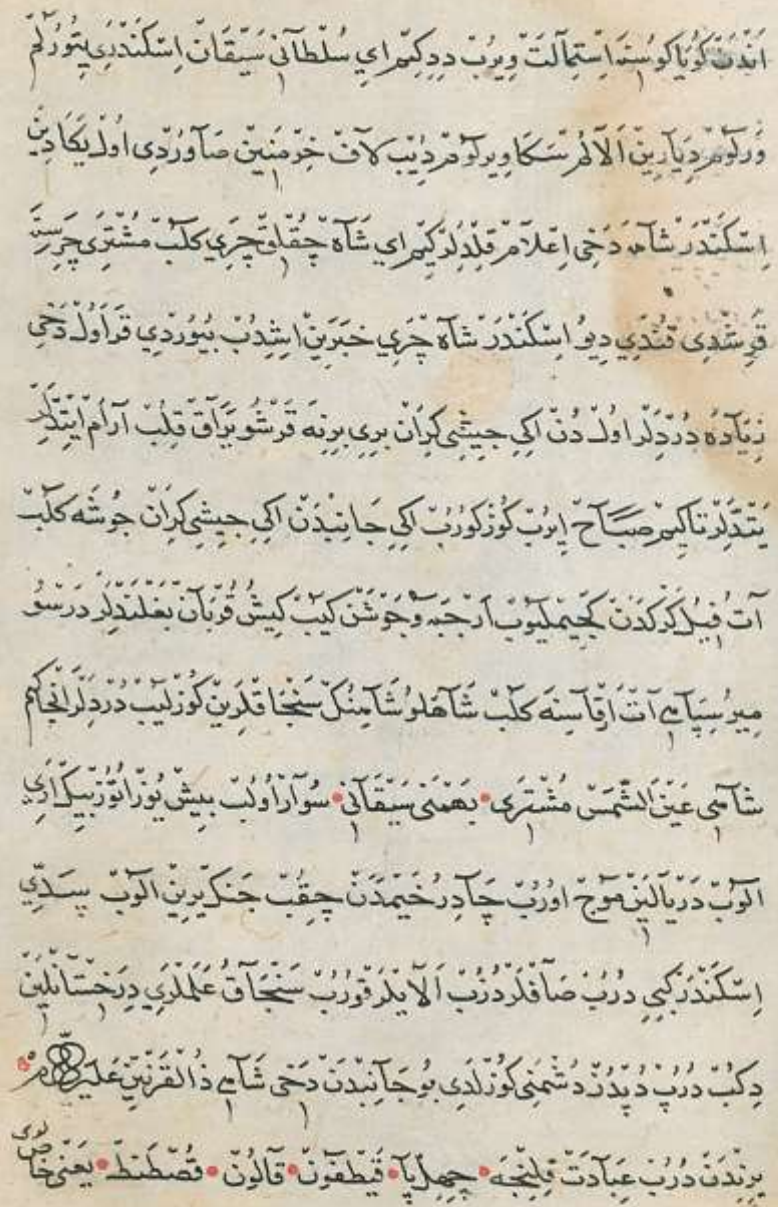 اَنْدَنْ كُويَا كوُسنَه اِسْتِمالَتْ وِيرُبْ دِدِ كِيم اي سُلْطانِي سَيْقَانْ اِسْكَنْدَرِي بِتُورُلُمْ
وَرَلوُمْ دِيَارِينْ اَلَالُمْ سَكَا وِيرَلوُمْ دُيِبْ لَافْ خِرْمَنِينْ صَاوُرْدِي اوُلْ يَكَادِينْ
اِسْكَنْدَرْ شاهَه دَخِي اِعْلَامْ قِلْدِلَرْ كِيم اي شَاهْ چُقْلِقْ چَرِي كَلُبْ مُشْتَرِي چَرِسِنَه
قَرِشْدِي قُنْدِي دِيوُ اِسْكَنْدَرْ شَاهْ چَرِي خَبَرِينْ اِشِدُبْ بُيُورْدِي قَرَاوُلْ دَخِي
زِيَادَه دُرْدِلَرْ اوُلْ دُنْ اِكِي جِيشِي كِرَانْ بِرِي بِرِنَه قَرْشُو يَرَاقْ قِلُبْ آرَامْ اِيتْدِلَرْ
يَتْدِلَرْ تَا كِيمْ صَبَاحْ اِيرُبْ كوُزْ كوُرُبْ اِكِي جَانِبْدَنْ اِكِي جِيشِي كِرَانْ جوُشَه كَلُبْ
آتْ فِيلْ كَرْكَدَنْ كَجِيمْلَيوُبْ اَرْ جَبَه وَجَوْشَنْ كِيبْ كِيشْ قُرْبَانْ بَغْلَنْدِلَرْ دَرْسوُ
مِيرُ سِپَاهِي آتْ اَرْقَاسِنَه كَلُبْ شَاهْلوُ شَاهِنُكْ سَنْجَاقْلَرِينْ كوُزْلَيبْ دُرْدِلَرْ اَنْجَا كِمْ
شاهِي عَيْنَ الشَّمْسْ مُشْتَرِي بَهْمَنِي سَيْقَانِي سُوَارْ اوُلُبْ بِيشْ يوُزْ اوُتُزْ بِيكْ اَرِي
الوُبْ دَرْيَالَيِنْ مَوْجْ اوُرُبْ چَادِرُ خَيْمَدَنْ چِقُبْ جَنْكْ يِرِينْ الوُبْ سَدِّي
اِسْكَنْدَرْ كِبِي دُرُبْ صَافْلَرْ دُزُبْ اَلَايْلَرْ قوُرُبْ سَنْجَاقُ عَلَمْلَرِي دِرَخْسْتَانْلَيِنْ
دِكُبْ دُرُبْ دُشْمَنِي كوُزْلَدِي بوُ جَانِبْدَنْ دَخِي شَاهِي ذُالْقَرْنَيْنِ
يِرِنْدَنْ دُرُبْ عِبَادَتْ قِلِنْجَه چِهِلْپَا قَيْطَفوُنْ قَالوُنْ قُصْطَنْطْ يَعْنِي